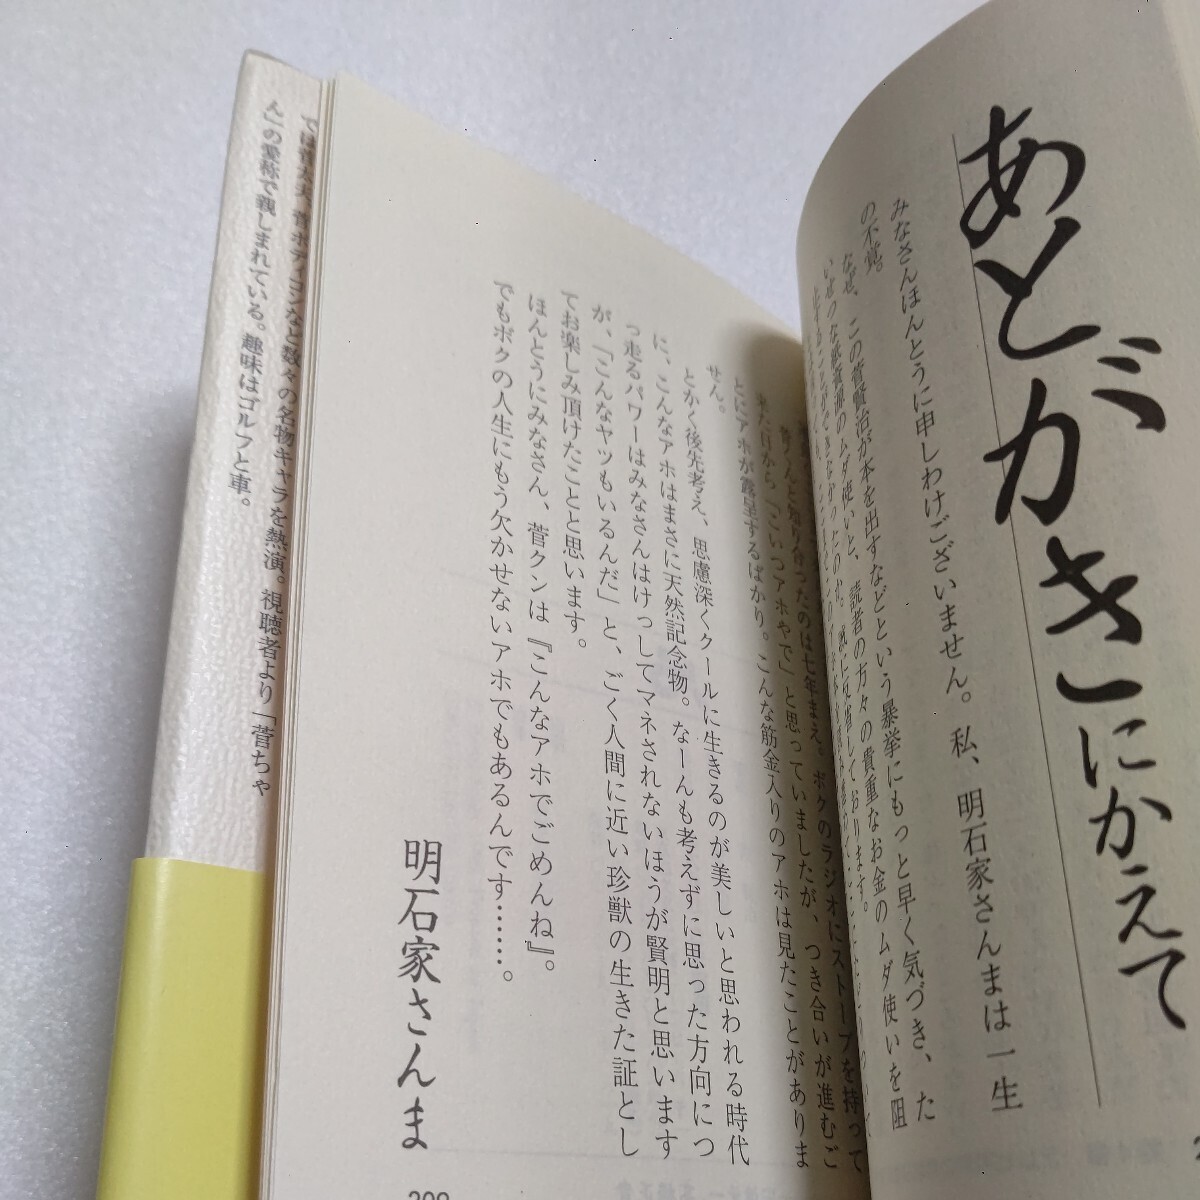 あとがきにかえて
みなさんほんとうに申しわけございません。私、明石家さんまは一生
の不覚。
なぜ、この菅賢治が本を出すなどという暴挙にもっと早く気づき、た
いせつな紙資源のムダ使いと、読者の方々の貴重なお金のムダ使いを阻
菅クンと知り合ったのは七年まえ。ボクのラジオにストーブを持って
来た日から「こいつアホやで」と思っていましたが、つき合いが進むご
とにアホが露呈するばかり。こんな筋金入りのアホは見たことがありま
せん。
とかく後先考え、思慮深くクールに生きるのが美しいと思われる時代
に、こんなアホはまさに天然記念物。なーんも考えずに思った方向につ
っ走るパワーはみなさんはけっしてマネされないほうが賢明と思います
が、「こんなヤツもいるんだ」と、ごく人間に近い珍獣の生きた証とし
てお楽しみ頂けたことと思います。
ほんとうにみなさん、菅クンは『こんなアホでごめんね』。
でもボクの人生にもう欠かせないアホでもあるんです……。
明石家さんま
菅ボディコンなど数々の名物キャラを熱演。視聴者より「菅ちゃ
ん」の愛称で親しまれている。趣味はゴルフと車。